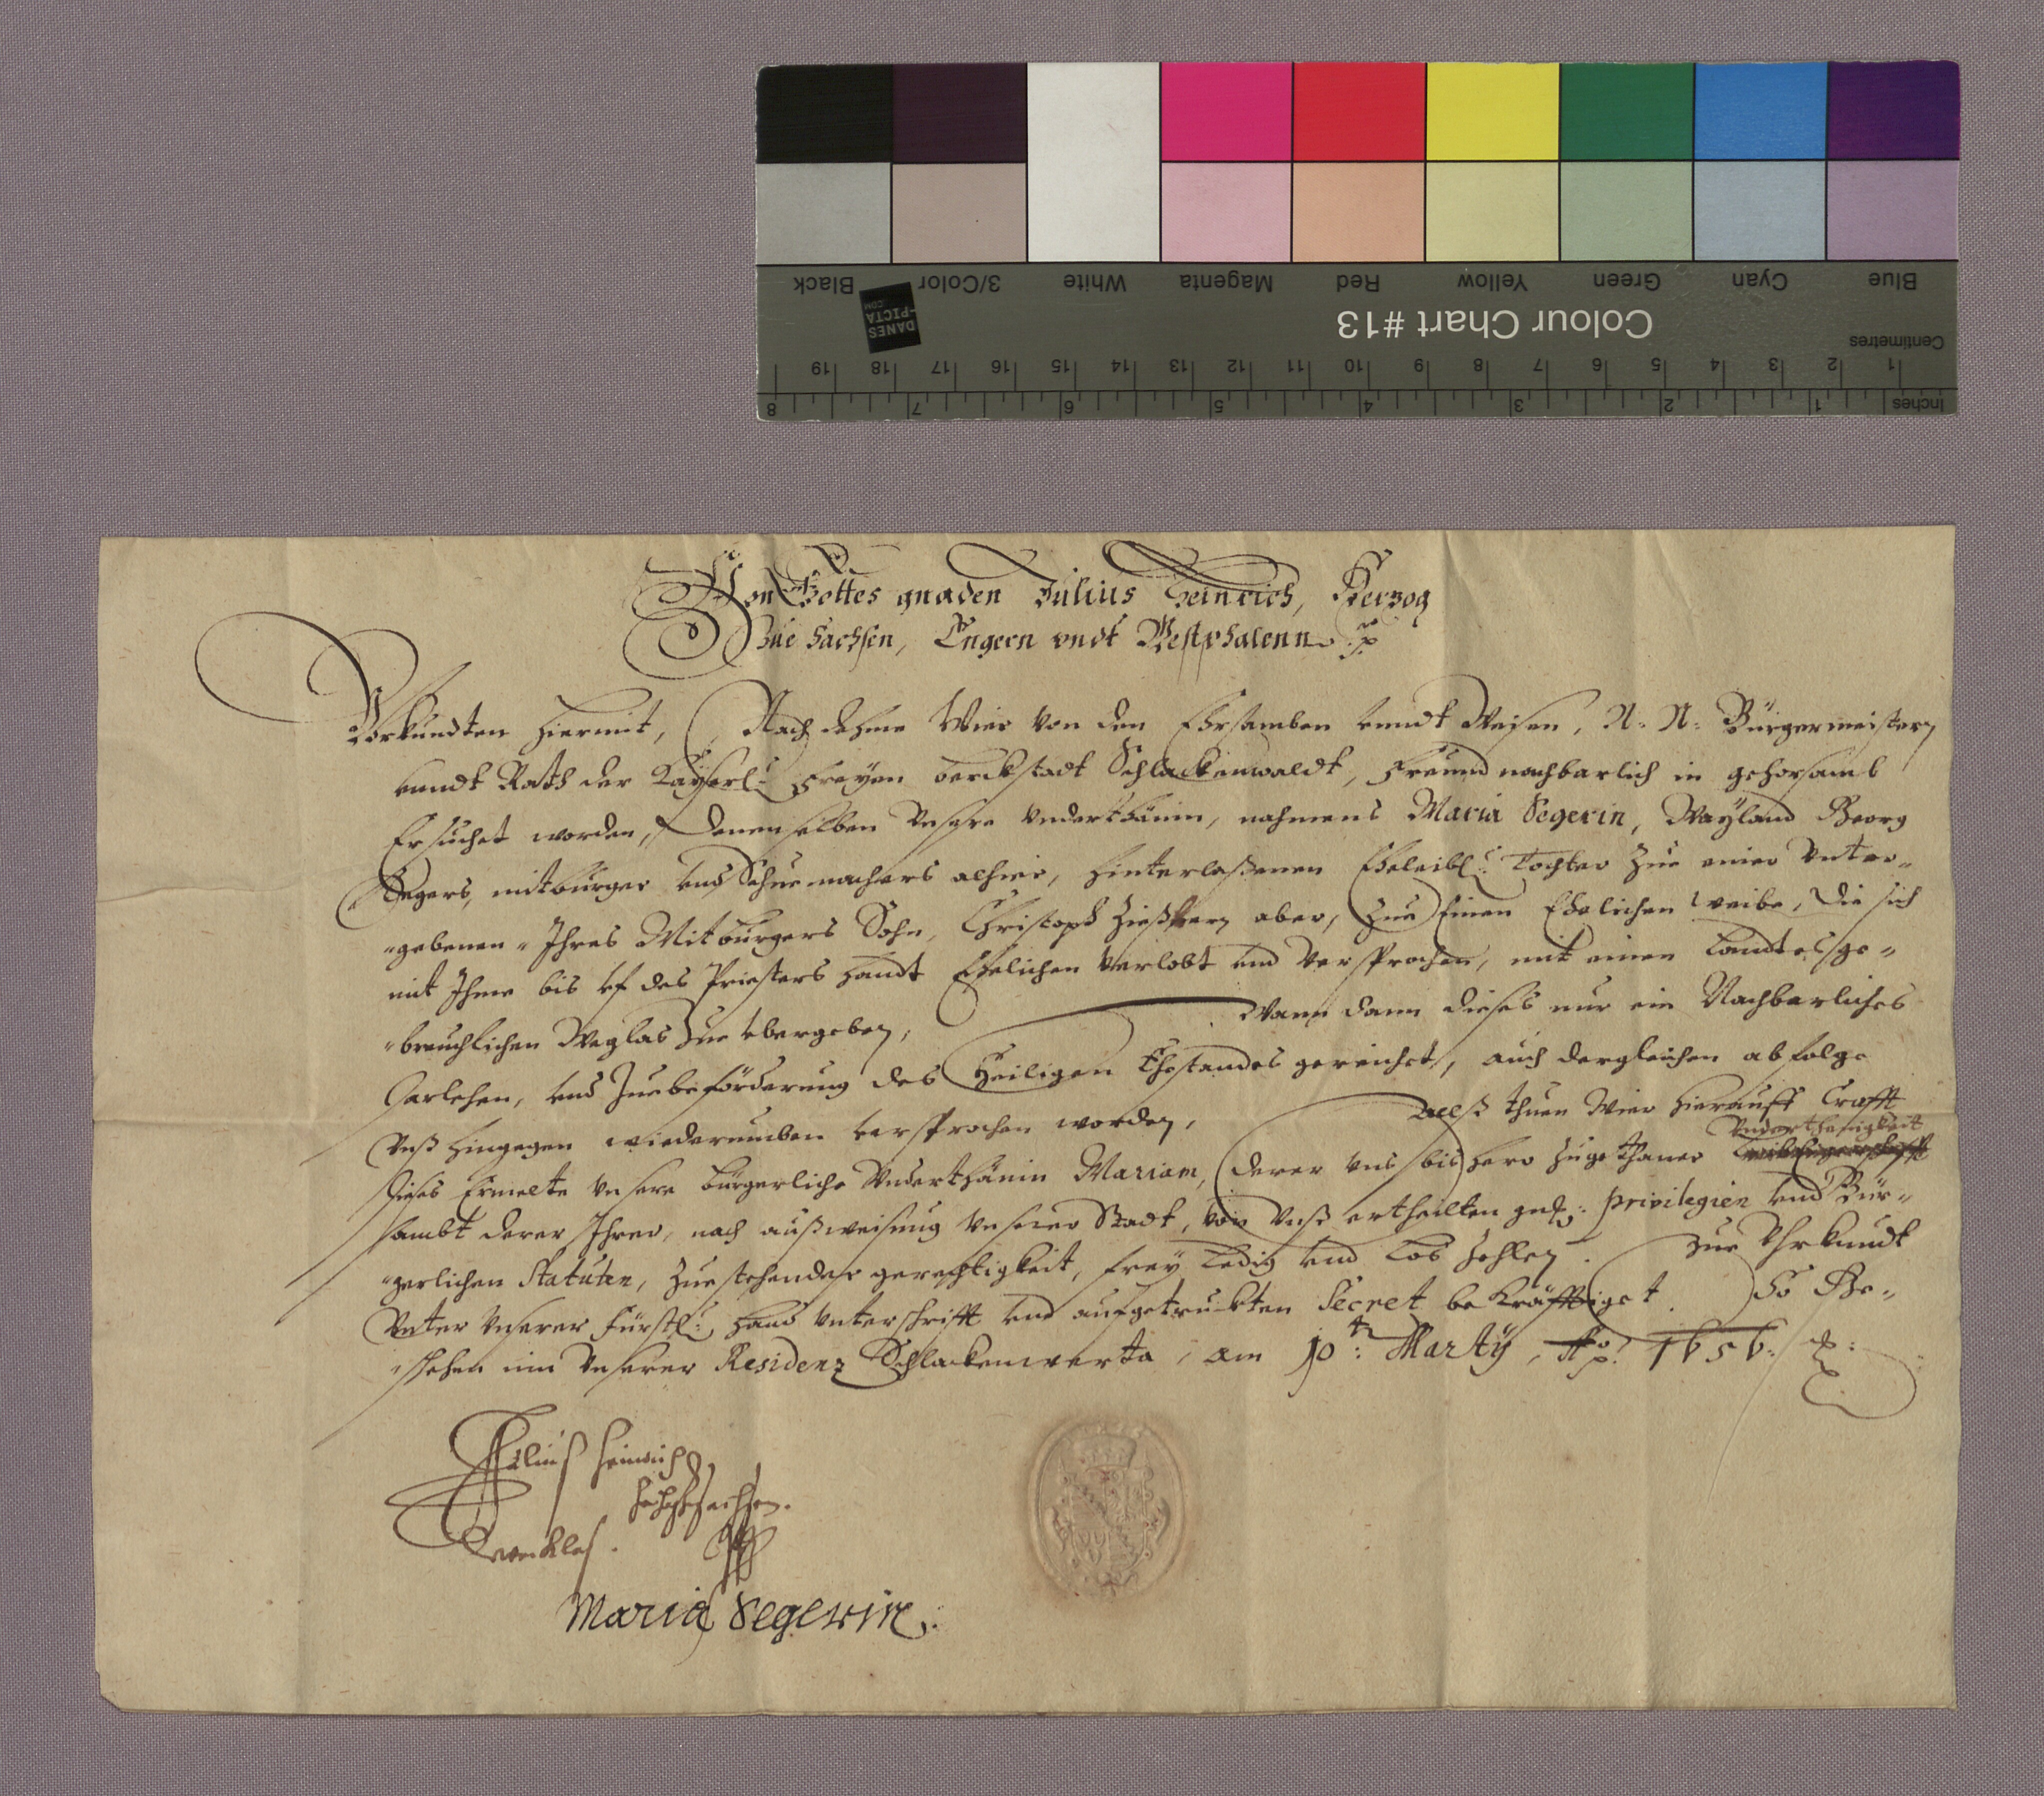 Blue Cyan Green Yellow Red Magenta White 3/Color Black
Colour Chart #13
DANES
-PICTA
.COM
Centimetres
1 2 3 4 5 6 7 8 9 10 11 12 13 14 15 16 17 18 19
Inches 1 2 3 4 5 6 7 8
Von Gottes gnaden Julius Heinrich, Herzog
Zue Sachsen, Engern vndt Westphalenn
Vhrkundten hiermit, Nach dehme Wier von den Ehrsamben vnndt Weisen, N: N: Bürgermeistern
vnndt Rath der Kayserl: Freyen Berckstadt Schlackenwaldt, Freundnachbarlich in gehorsamb
Ersuchet worden, denenselben Vnsere Vnderthänin, nahmens Maria Segerin, Weyland Georg
Segers, mitbürger vnd Schuemachers alhier, hinterlaßenen Eheleibl: Tochter zue einer Vnter-
-gebenen- Ihres Mitbürgers Sohn, Christoph aber, Zue Einen Ehelichen weibe, die sich
mit Ihme bis vf des Priesters handt Ehelichen Verlobt vnd Versprochen, mit einen Landtesge-
-breuchlichen Weglas Zue vbergeben, Wann dann dieses nur ein Nachbarliches
Darlehen, vnd Zuebeförderung des Heiligen Ehestandes gereichet, auch dergleichen abfolge
Vnß hingegen wiederumben versprochen worden, Alß thuen Wier hierauff Crafft
Vnderthenigkeit
dieses Ermelte Vnsere bürgerliche Vnderthänin Mariam, derer Vns bishero zugethaner
sambt derer Ihrer, nach außweisung Vnserer Stadt, von Vnß ertheilten gndg: privilegien vnd Bür-
-gerlichen Statuten, Zuestehender gerechtigkeit, frey Ledig vnd Los Zehlen. Zue Vhrkundt
Vnter Vnserer Fürstl: Hand Vnterschrifft vnd aufgetruckten Secret bekräfftiget. So Ge-
-schehen inn Vnserer Residenz Schlackenwerta, am 10: Marty, Ao: 1656:
Julius Heinrich
Maria Segerin.